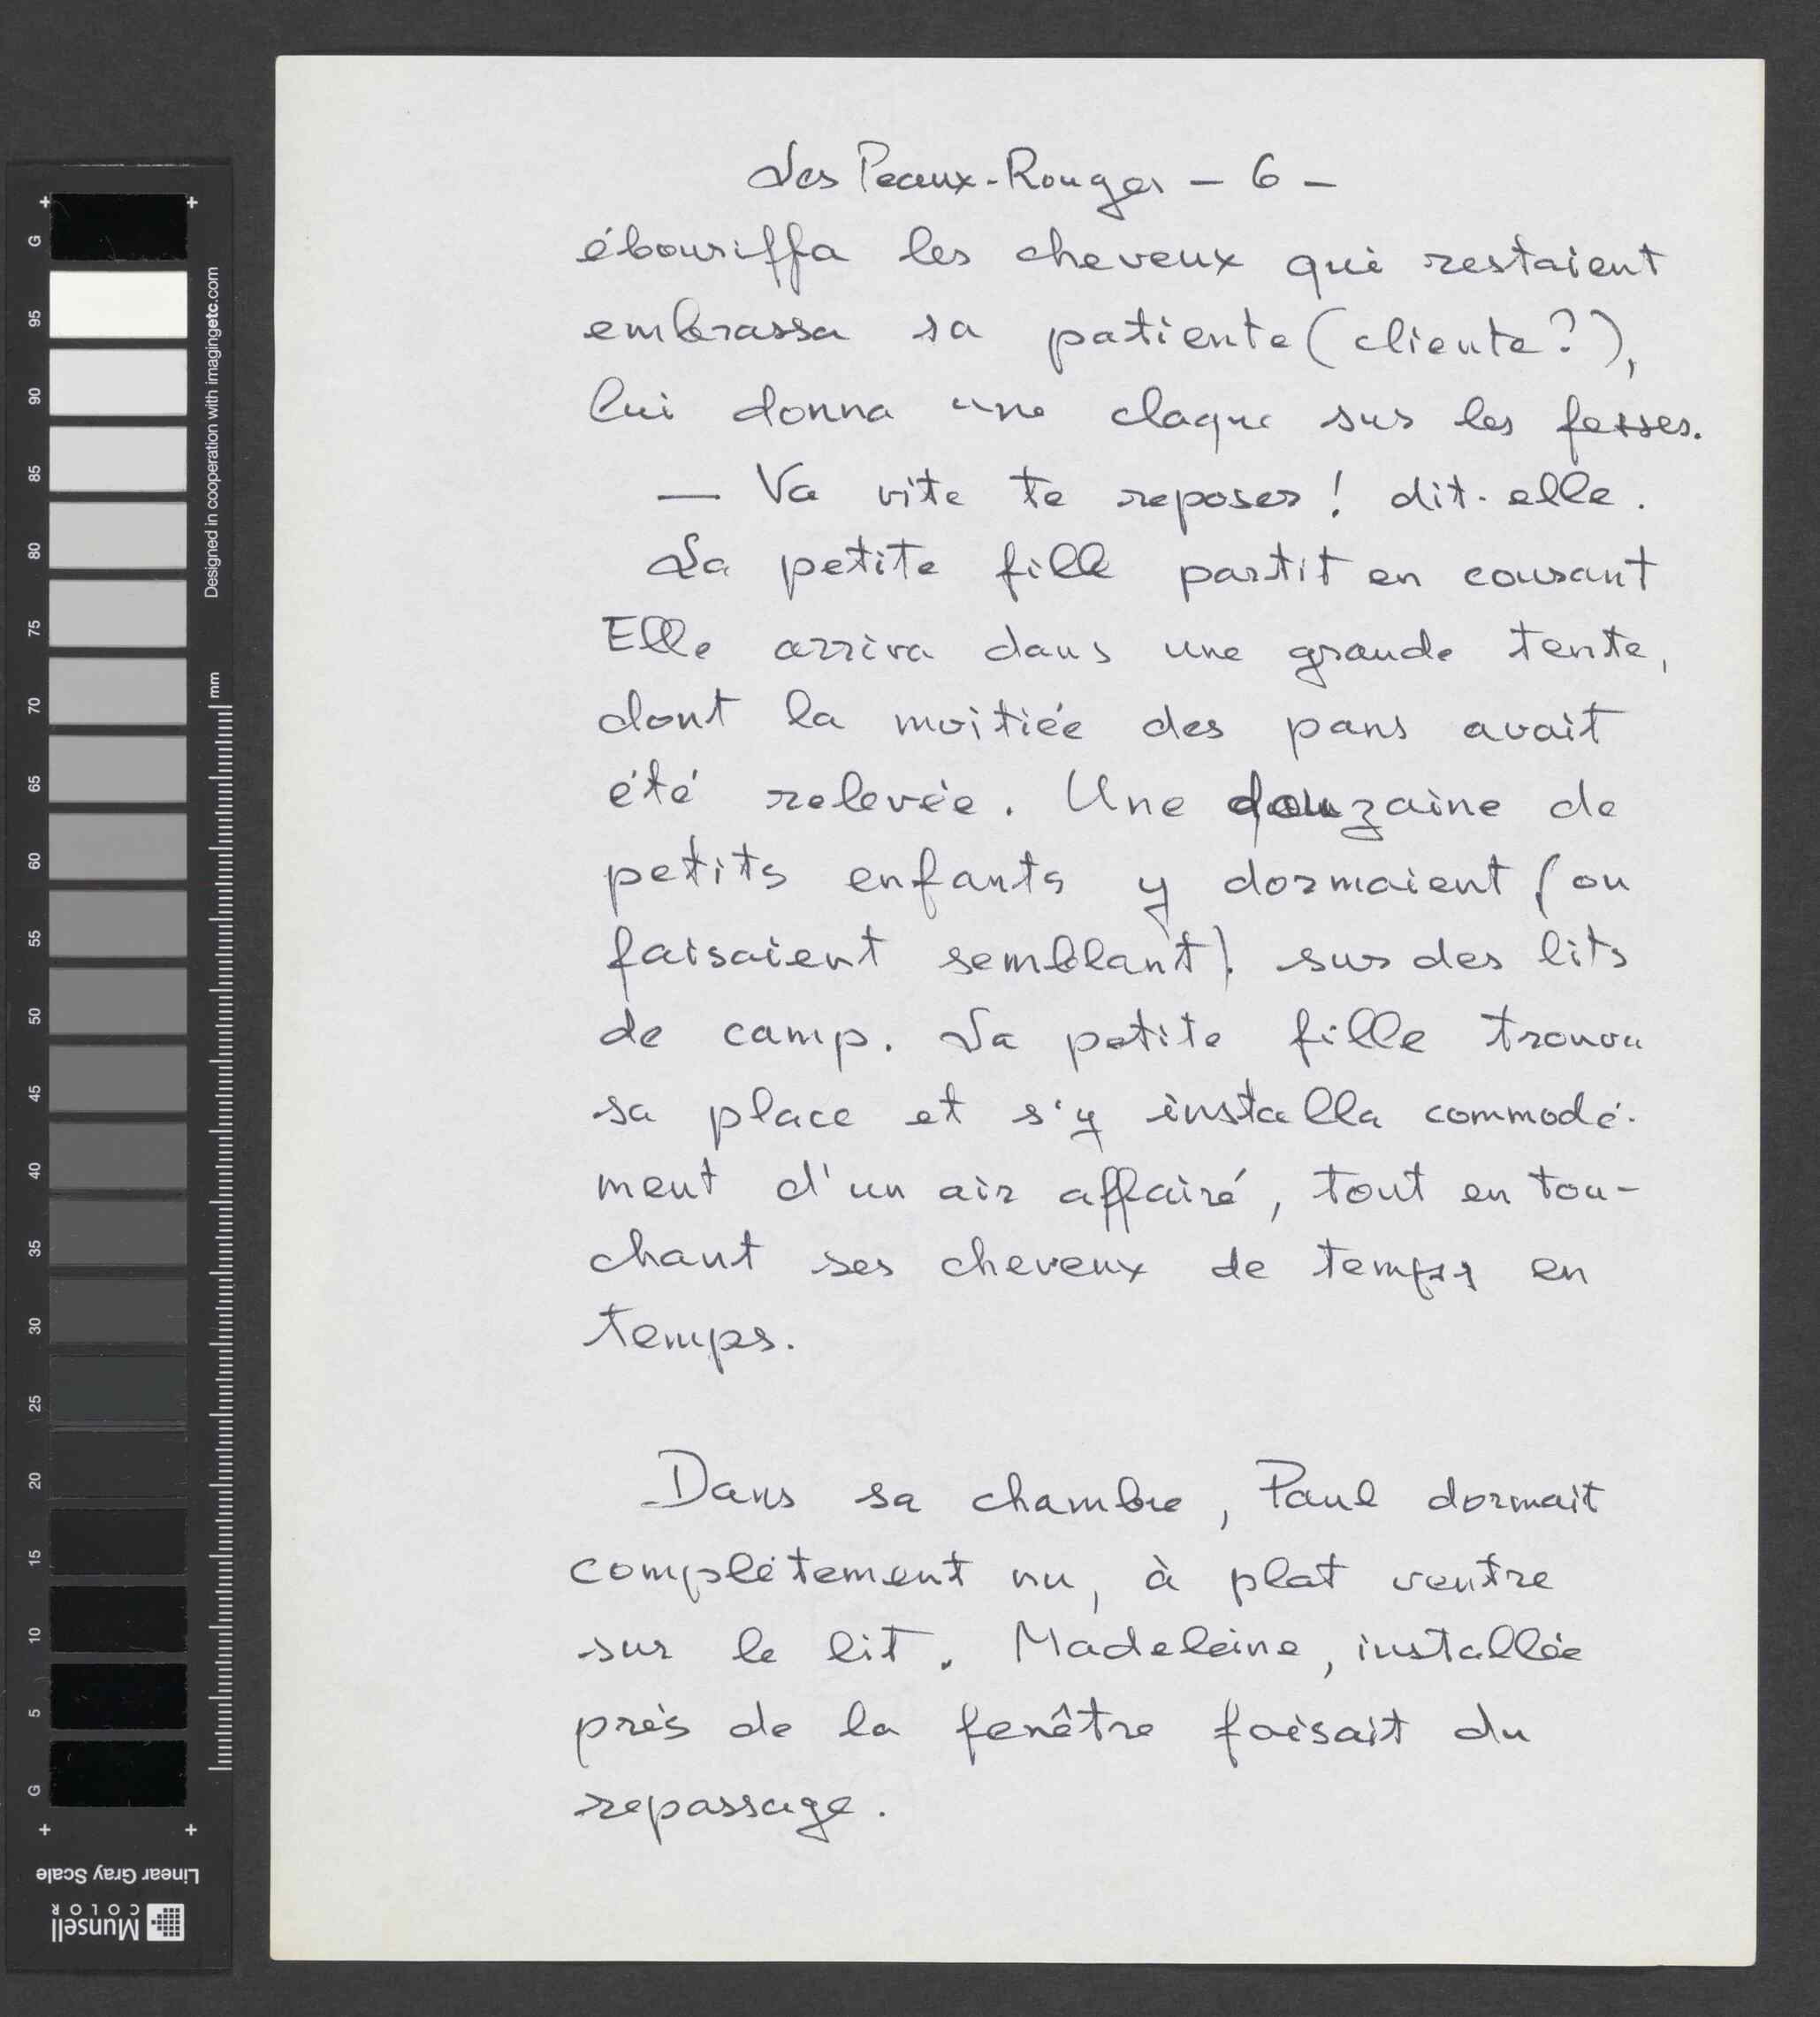 Les Peaux-Rouges - 6 -
ébouriffa les cheveux qui restaient
embrassa sa patiente (cliente?),
lui donna une claque sur les fesses.
— Va vite te reposer ! dit-elle.
La petite fille partit en courant
Elle arriva dans une grande tente,
dont la moitiée des pans avait
été relevée. Une douzaine de
petits enfants y dormaient (ou
faisaient semblant). sur des lits
de camp. La petite fille trouva
sa place et s'y installa commodé-
ment d'un air affairé, tout en tou-
chant ses cheveux de temps en
temps.
Dans sa chambre, Paul dormait
complètement nu, à plat ventre
sur le lit. Madeleine, installée
près de la fenêtre faisait du
repassage.
G 95 90 85 80 75 70 65 60 55 50 45 40 35 30 25 20 15 10 5 G
Designed in cooperation with imagingetc.com
mm
Linear Gray Scale
Munsell
COLOR